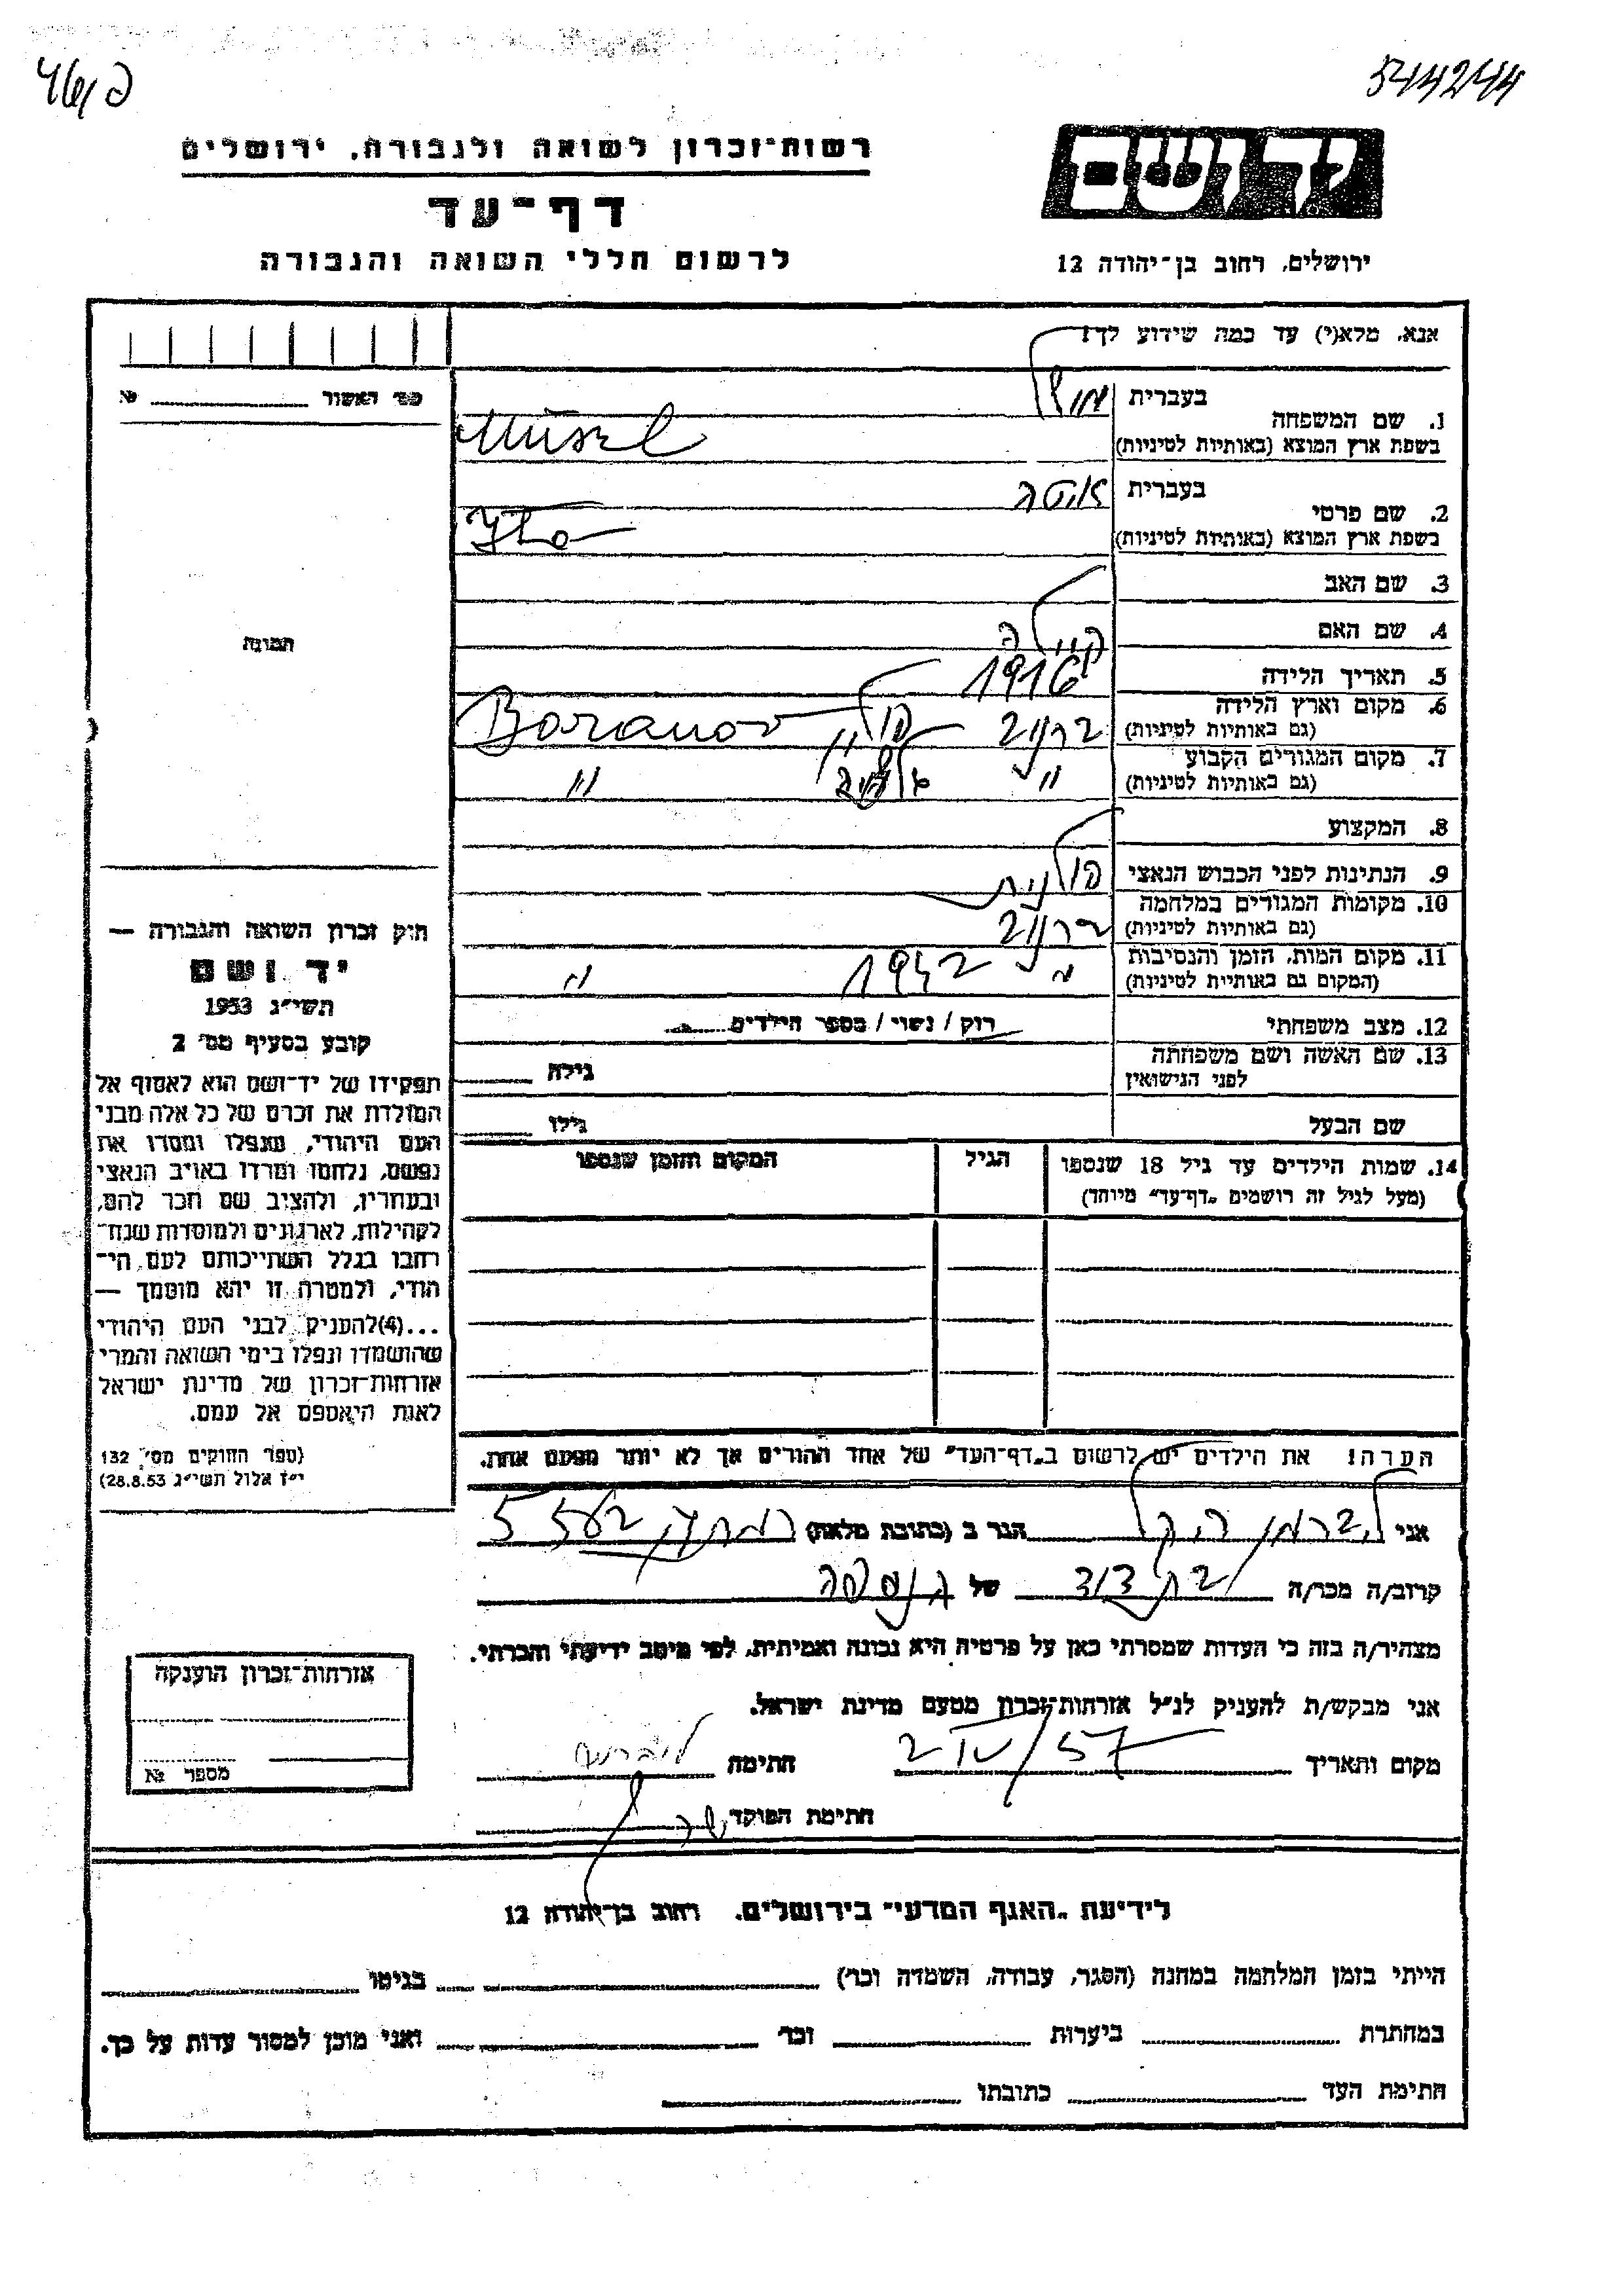 544244
רשות-זכרון לשואה ולגבורה, ירושלים
יד ושם
דף-עד
לרשום חללי השואה והגבורה
ירושלים, רחוב בן-יהודה 12
אנא, מלא(י) עד כמה שידוע לך!
מס׳ האשור № 
1. שם המשפחה
בעברית
בשפת ארץ המוצא (באותיות לטיניות) Müszel
2. שם פרטי
בעברית איטה
בשפת ארץ המוצא (באותיות לטיניות) Ita
3. שם האב
4. שם האם קיילה
5. תאריך הלידה 1916
6. מקום וארץ הלידה (גם באותיות לטיניות) ברנוב פולין Boranov
7. מקום המגורים הקבוע (גם באותיות לטיניות) " "
8. המקצוע
9. הנתינות לפני הכבוש הנאצי פולנית
10. מקומות המגורים במלחמה (גם באותיות לטיניות) ברנוב
11. מקום המות, הזמן והנסיבות (המקום גם באותיות לטיניות) " 1942 "
12. מצב משפחתי רוק / נשוי / מספר הילדים
13. שם האשה ושם משפחתה לפני הנישואין גילה
שם הבעל גילו
14. שמות הילדים עד גיל 18 שנספו (מעל לגיל זה רושמים „דף-עד" מיוחד) הגיל המקום והזמן שנספו
הערה: את הילדים יש לרשום ב„דף-העד" של אחד ההורים אך לא יותר מפעם אחת.
תמונה
חוק זכרון השואה והגבורה —
יד ושם
תשי״ג 1953
קובע בסעיף מס׳ 2
תפקידו של יד-ושם הוא לאסוף אל
המולדת את זכרם של כל אלה מבני
העם היהודי, שנפלו ומסרו את
נפשם, נלחמו ומרדו באויב הנאצי
ובעוזריו, ולהציב שם וזכר להם,
לקהילות, לארגונים ולמוסדות שנח-
רבו בגלל השתייכותם לעם הי-
הודי, ולמטרה זו יהא מוסמך —
...(4)להעניק לבני העם היהודי
שהושמדו ונפלו בימי השואה והמרי
אזרחות-זכרון של מדינת ישראל
לאות היאספם אל עמם.
(ספר החוקים מס׳ 132
י״ז אלול תשי״ג 28.8.53)
אני ליברמן רחל הגר ב (כתובת מלאה)
קרוב/ה מכר/ה בת דוד של הנספה
מצהיר/ה בזה כי העדות שמסרתי כאן על פרטיה היא נכונה ואמיתית, לפי מיטב ידיעתי והכרתי.
אני מבקש/ת להעניק לנ״ל אזרחות-זכרון מטעם מדינת ישראל.
מקום ותאריך 2 IV/57 חתימה
חתימת הפוקד
אזרחות-זכרון הוענקה
מספר №
לידיעת „האגף המדעי" בירושלים, רחוב בן-יהודה 12
הייתי בזמן המלחמה במחנה (הסגר, עבודה, השמדה וכר׳) בגיטו
במחתרת ביערות וכר׳ ואני מוכן למסור עדות על כך.
חתימת העד כתובתו